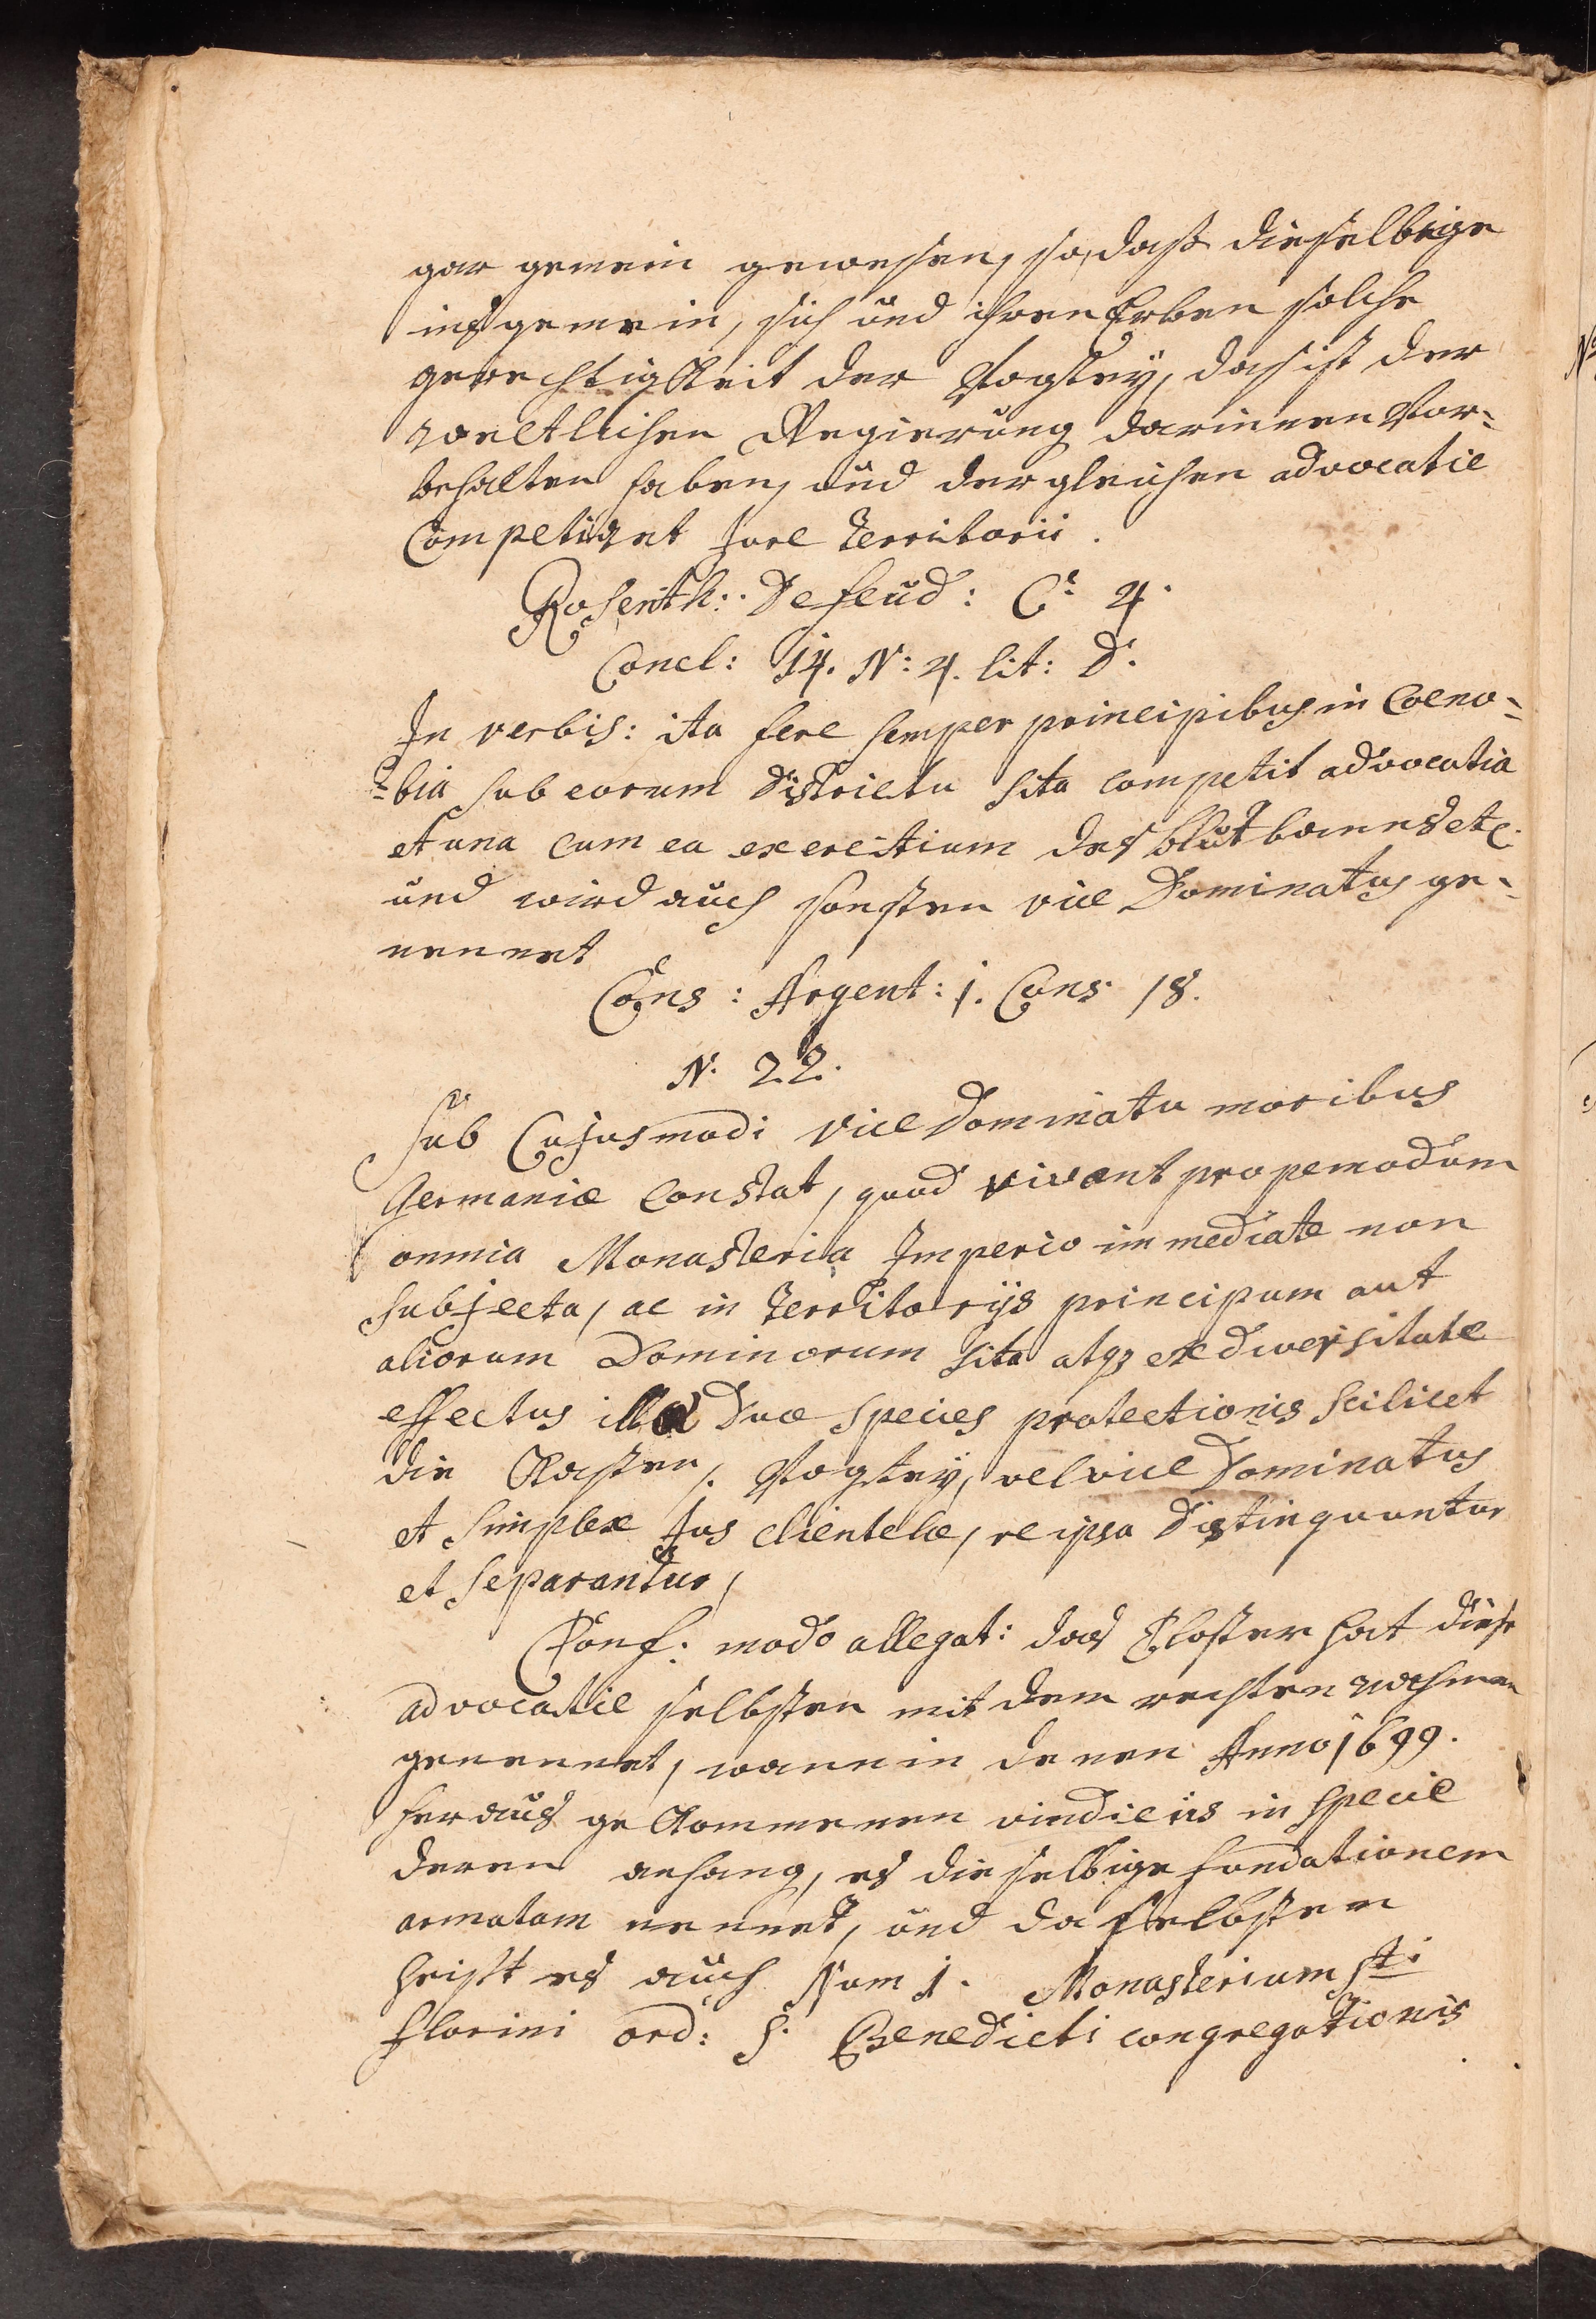 gar gemein gewesen, so, daß dieselbige
insgemein, sich und ihren Erben solche
gerechtigkeit der Vogtey, das ist der
weltlichen Regierung darinnen Vor-
behalten haben, und dergleichen advocatie
Competiret Jure Territorii.
Rosenth: De feud: C: 4.
Concl: 14. N: 4. lit: D.
In verbis: ita fere semper principibus in Coeno-
-bia sub eorum districtu sita competit advocatia
et una cum ea exercitium des blutbanns etc.
und wird auch sonsten vice Dominatus ge-
nennet
Cons: Argent: 1. Cons 18.
N. 22.
Sub Cujusmodi vice Dominatu moribus
Germaniæ constat, quod vivant propemodum
omnia Monasteria Imperio immediate non
subjecta, ac in Territorijs principum aut
aliorum Dominorum sita atq3 ex diversitate
effectus illæ duæ species protectionis scilicet
die Kasten,. Vogtey, vel vice Dominatus
et simplex jus clientelæ, re ipsa distinguuntur
et separantur,
Conf: modo allegat: das Closter hat diese
advocatie selbsten mit dem rechten nahmen
genennet, wann in denen Anno 1699.
heraus gekommenen vindiciis in specie
deren anhang, es dieselbige fundationem
armatam nennet, und daselbsten
heist es auch Num 1. Monasterium Sti
Florini ord: S. Benedicti congregationis